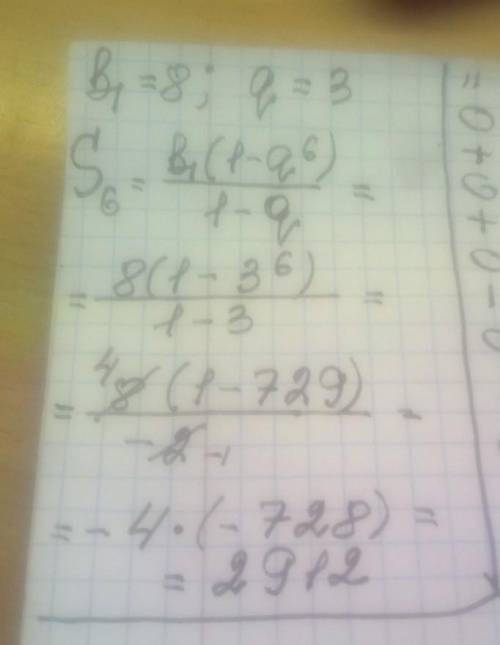 b₁ = 8; q = 3
S₆ = b₁(1 - q⁶) / 1 - q =
= 8(1 - 3⁶) / 1 - 3 =
= ⁴8 (1 - 729) / -2 -1 -
= - 4 · (- 728) =
= 2912
= 0 + 0 + 0 -